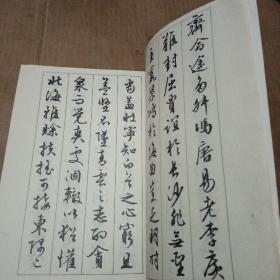 齊命途多舛馮唐易老李廣
難封屈賈誼於長沙非無聖
主竄梁鴻於海曲豈乏明時
當益壯寧知白首之心窮且
益堅不墜青雲之志酌貪
泉而覺爽處涸轍以猶懽
北海雖賒扶搖可接東隅已